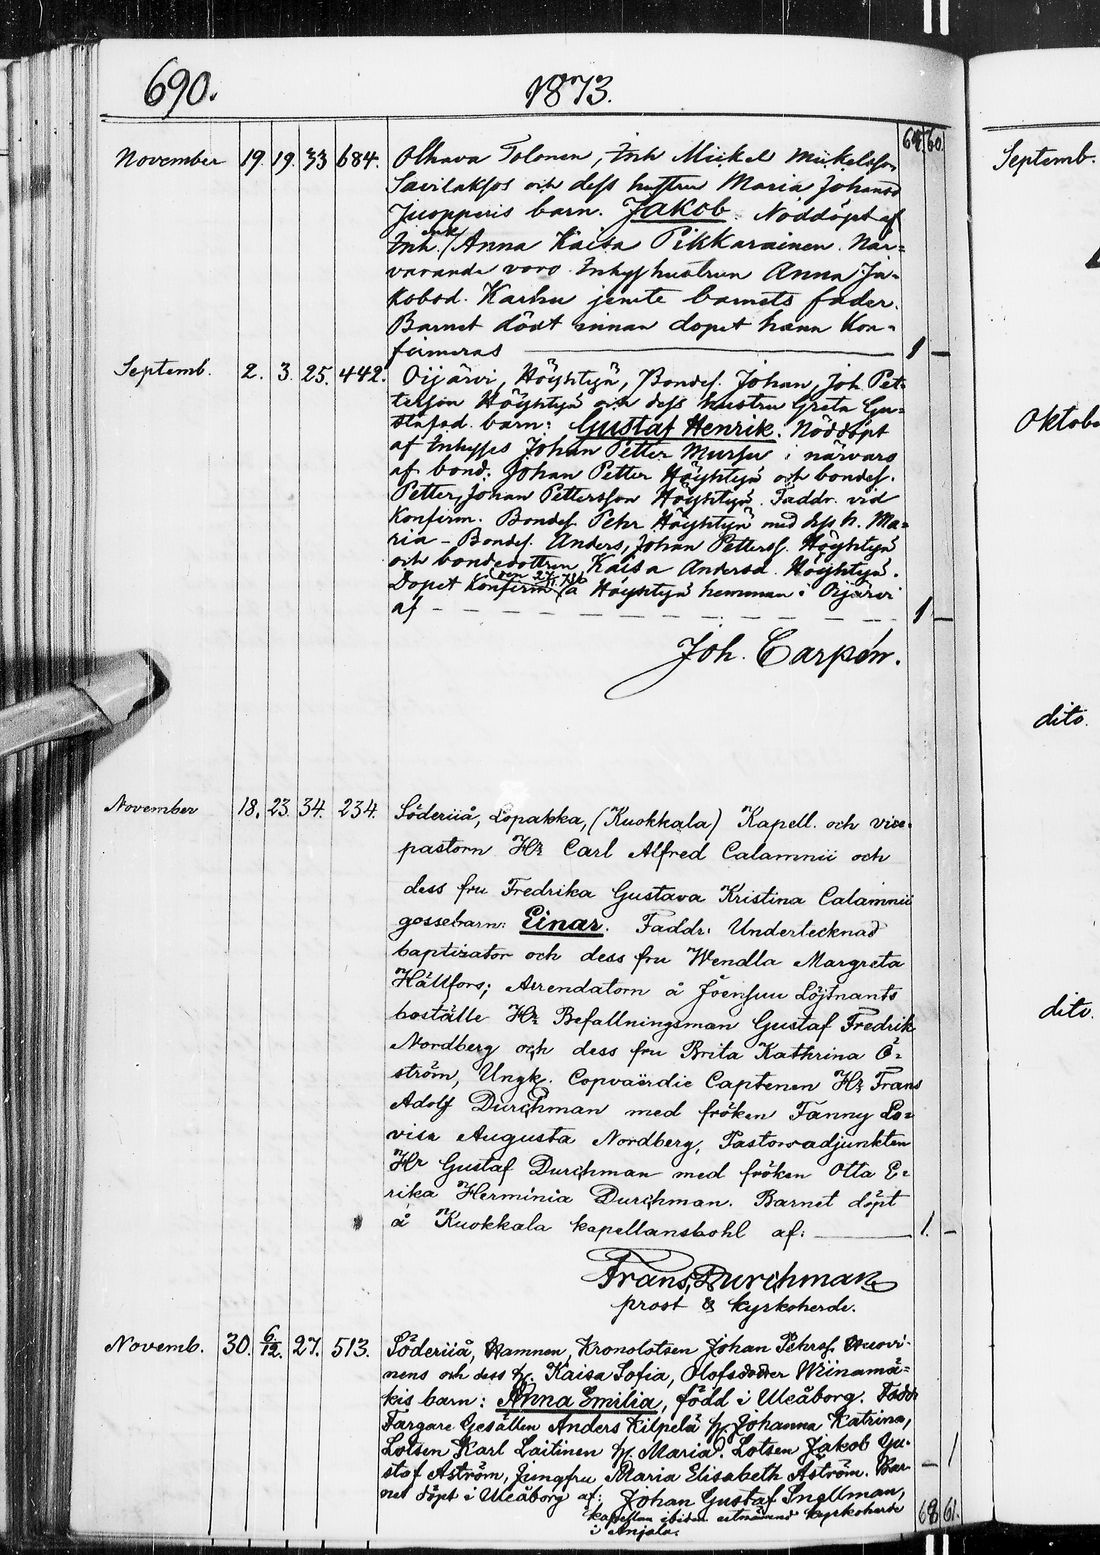 690.
1873.
64 60
November 19. 19. 33 684. Olhava Tolonen, Inh Mickel Mickelsson
Savilaksos och dess hustru Maria Johansd
Juopperis barn. Jakob. Nöddöpt af
Inh. enk. Anna Kaisa Pikkarainen. När-
varande voro Inhyshustrun Anna Ja-
kobsd. Karhu jemte barnets fader.
Barnet dödt innan dopet hann Kon-
firmeras 1 —
Septemb. 2. 3. 25. 442. Oijärvi, Höyhtyä, Bondes. Johan, Joh. Pet-
tersson Höyhtyä och dess hustru Greta Gu-
stafsd. barn: Gustaf Henrik. Nöddöpt
af Inhyses Johan Petter Mursu i närvaro
af bond. Johan Petter Höyhtyä och bondes.
Petter, Johan Pettersson Höyhtyä. Faddr. vid
Konfirm. Bondes. Pehr Höyhtyä med dess h. Ma-
ria – Bondes. Anders, Johan Petterss. Höyhtyä
och bondedottren Kaisa Andersd. Höyhtyä.
Dopet Konfirm. å Höyhtyä hemman i Oijärvi
af 1 —
Joh. Carpén.
November 18. 23. 34. 234. Söderiiå, Lopakka, (Kuokkala) Kapell. och vice-
pastorn Hr Carl Alfred Calamnii och
dess fru Fredrika Gustava Kristina Calamnii
gossebarn: Einar. Faddr: Undertecknad
baptizator och dess fru Wendla Margreta
Hällfors; Arrendatorn å Joensuu Löjtnants
boställe Hr Befallningsman Gustaf Fredrik
Nordberg och dess fru Brita Kathrina Ö-
ström, Ungk. Copvaërdie Captenen Hr Frans
Adolf Durchman med fröken Fanny Lo-
visa Augusta Nordberg, Pastorsadjunkten
Hr Gustaf Durchman med fröken Otta E-
rika Herminia Durchman. Barnet döpt
å Kuokkala kapellansbohl af: 1. —
Frans Durchman
prost & kyrkoherde.
Novemb. 30. 6/12. 27. 513. Söderiiå, Hamnen, Kronolotsen Johan Pehrss. Huovi-
nens och dess h. Kaisa Sofia, Olofsdotter Wiinamä-
kis barn: Anna Emilia, född i Uleåborg. Faddr
Färgare Gesällen Anders Kilpelä h. Johanna Katrina,
Lotsen Karl Laitinen h. Maria. Lotsen Jakob Gu-
staf Aström, Jungfru Maria Elisabeth Aström. Bar-
net döpt i Uleåborg af: Johan Gustaf Snellman, — 1
kapellan ibidem utnämnd kyrkoherde
i Anjala.
68 61.
Septemb.
Oktobe
dito.
dito.